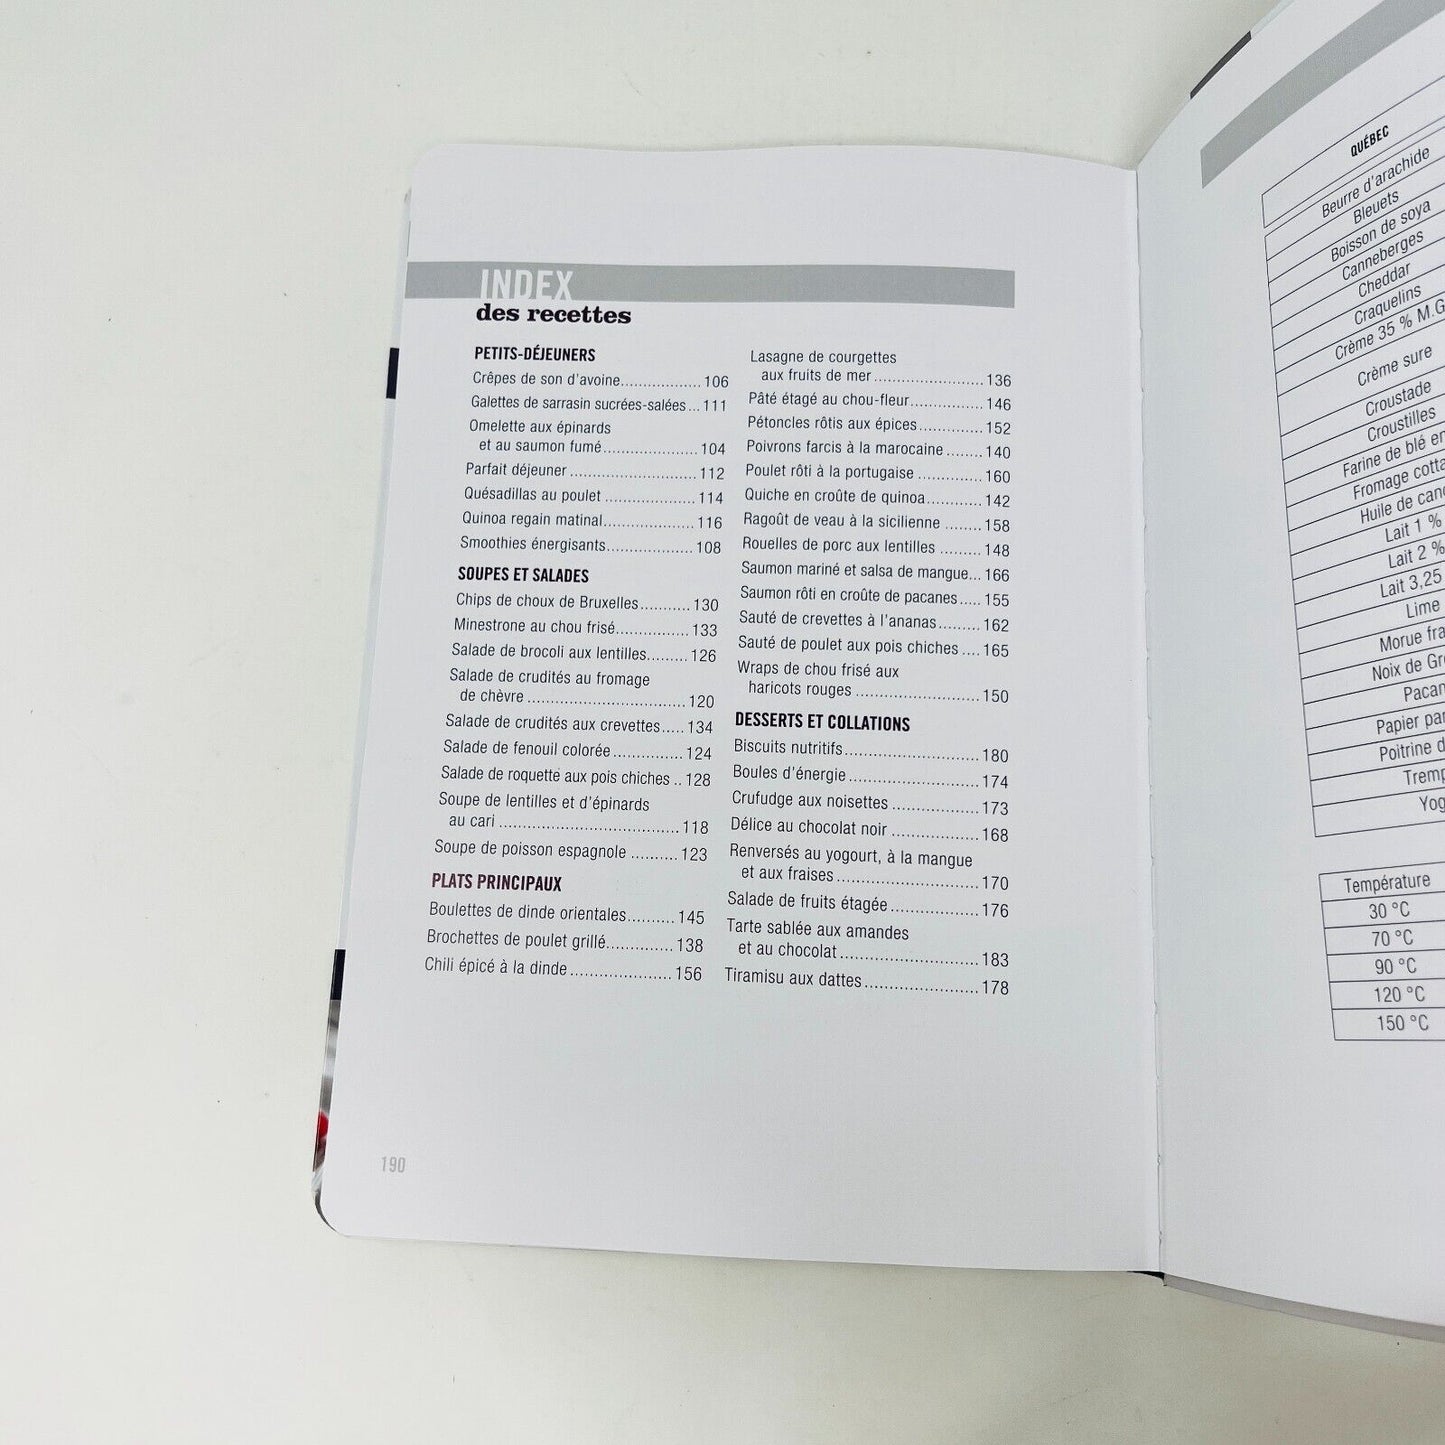 INDEX
des recettes
PETITS-DÉJEUNERS
Crêpes de son d'avoine................. 106
Galettes de sarrasin sucrées-salées... 111
Omelette aux épinards
et au saumon fumé.................... 104
Parfait déjeuner ........................... 112
Quésadillas au poulet ................... 114
Quinoa regain matinal................... 116
Smoothies énergisants.................. 108
SOUPES ET SALADES
Chips de choux de Bruxelles........... 130
Minestrone au chou frisé................ 133
Salade de brocoli aux lentilles......... 126
Salade de crudités au fromage
de chèvre ................................. 120
Salade de crudités aux crevettes..... 134
Salade de fenouil colorée............... 124
Salade de roquette aux pois chiches .. 128
Soupe de lentilles et d'épinards
au cari ...................................... 118
Soupe de poisson espagnole .......... 123
PLATS PRINCIPAUX
Boulettes de dinde orientales.......... 145
Brochettes de poulet grillé.............. 138
Chili épicé à la dinde ..................... 156
Lasagne de courgettes
aux fruits de mer ....................... 136
Pâté étagé au chou-fleur............... 146
Pétoncles rôtis aux épices.............. 152
Poivrons farcis à la marocaine ........ 140
Poulet rôti à la portugaise .............. 160
Quiche en croûte de quinoa............ 142
Ragoût de veau à la sicilienne ........ 158
Rouelles de porc aux lentilles ......... 148
Saumon mariné et salsa de mangue... 166
Saumon rôti en croûte de pacanes..... 155
Sauté de crevettes à l'ananas......... 162
Sauté de poulet aux pois chiches .... 165
Wraps de chou frisé aux
haricots rouges .......................... 150
DESSERTS ET COLLATIONS
Biscuits nutritifs............................. 180
Boules d'énergie ............................ 174
Crufudge aux noisettes .................. 173
Délice au chocolat noir ................... 168
Renversés au yogourt, à la mangue
et aux fraises.............................. 170
Salade de fruits étagée................... 176
Tarte sablée aux amandes
et au chocolat............................. 183
Tiramisu aux dattes........................ 178
190
QUÉBEC
Beurre d'arachide
Bleuets
Boisson de soya
Canneberges
Cheddar
Craquelins
Crème 35 % M.G
Crème sure
Croustade
Croustilles
Farine de blé en
Fromage cotta
Huile de cano
Lait 1 %
Lait 2 %
Lait 3,25
Lime
Morue fra
Noix de Gre
Pacan
Papier par
Poitrine d
Tremp
Yog
Température
30 °C
70 °C
90 °C
120 °C
150 °C